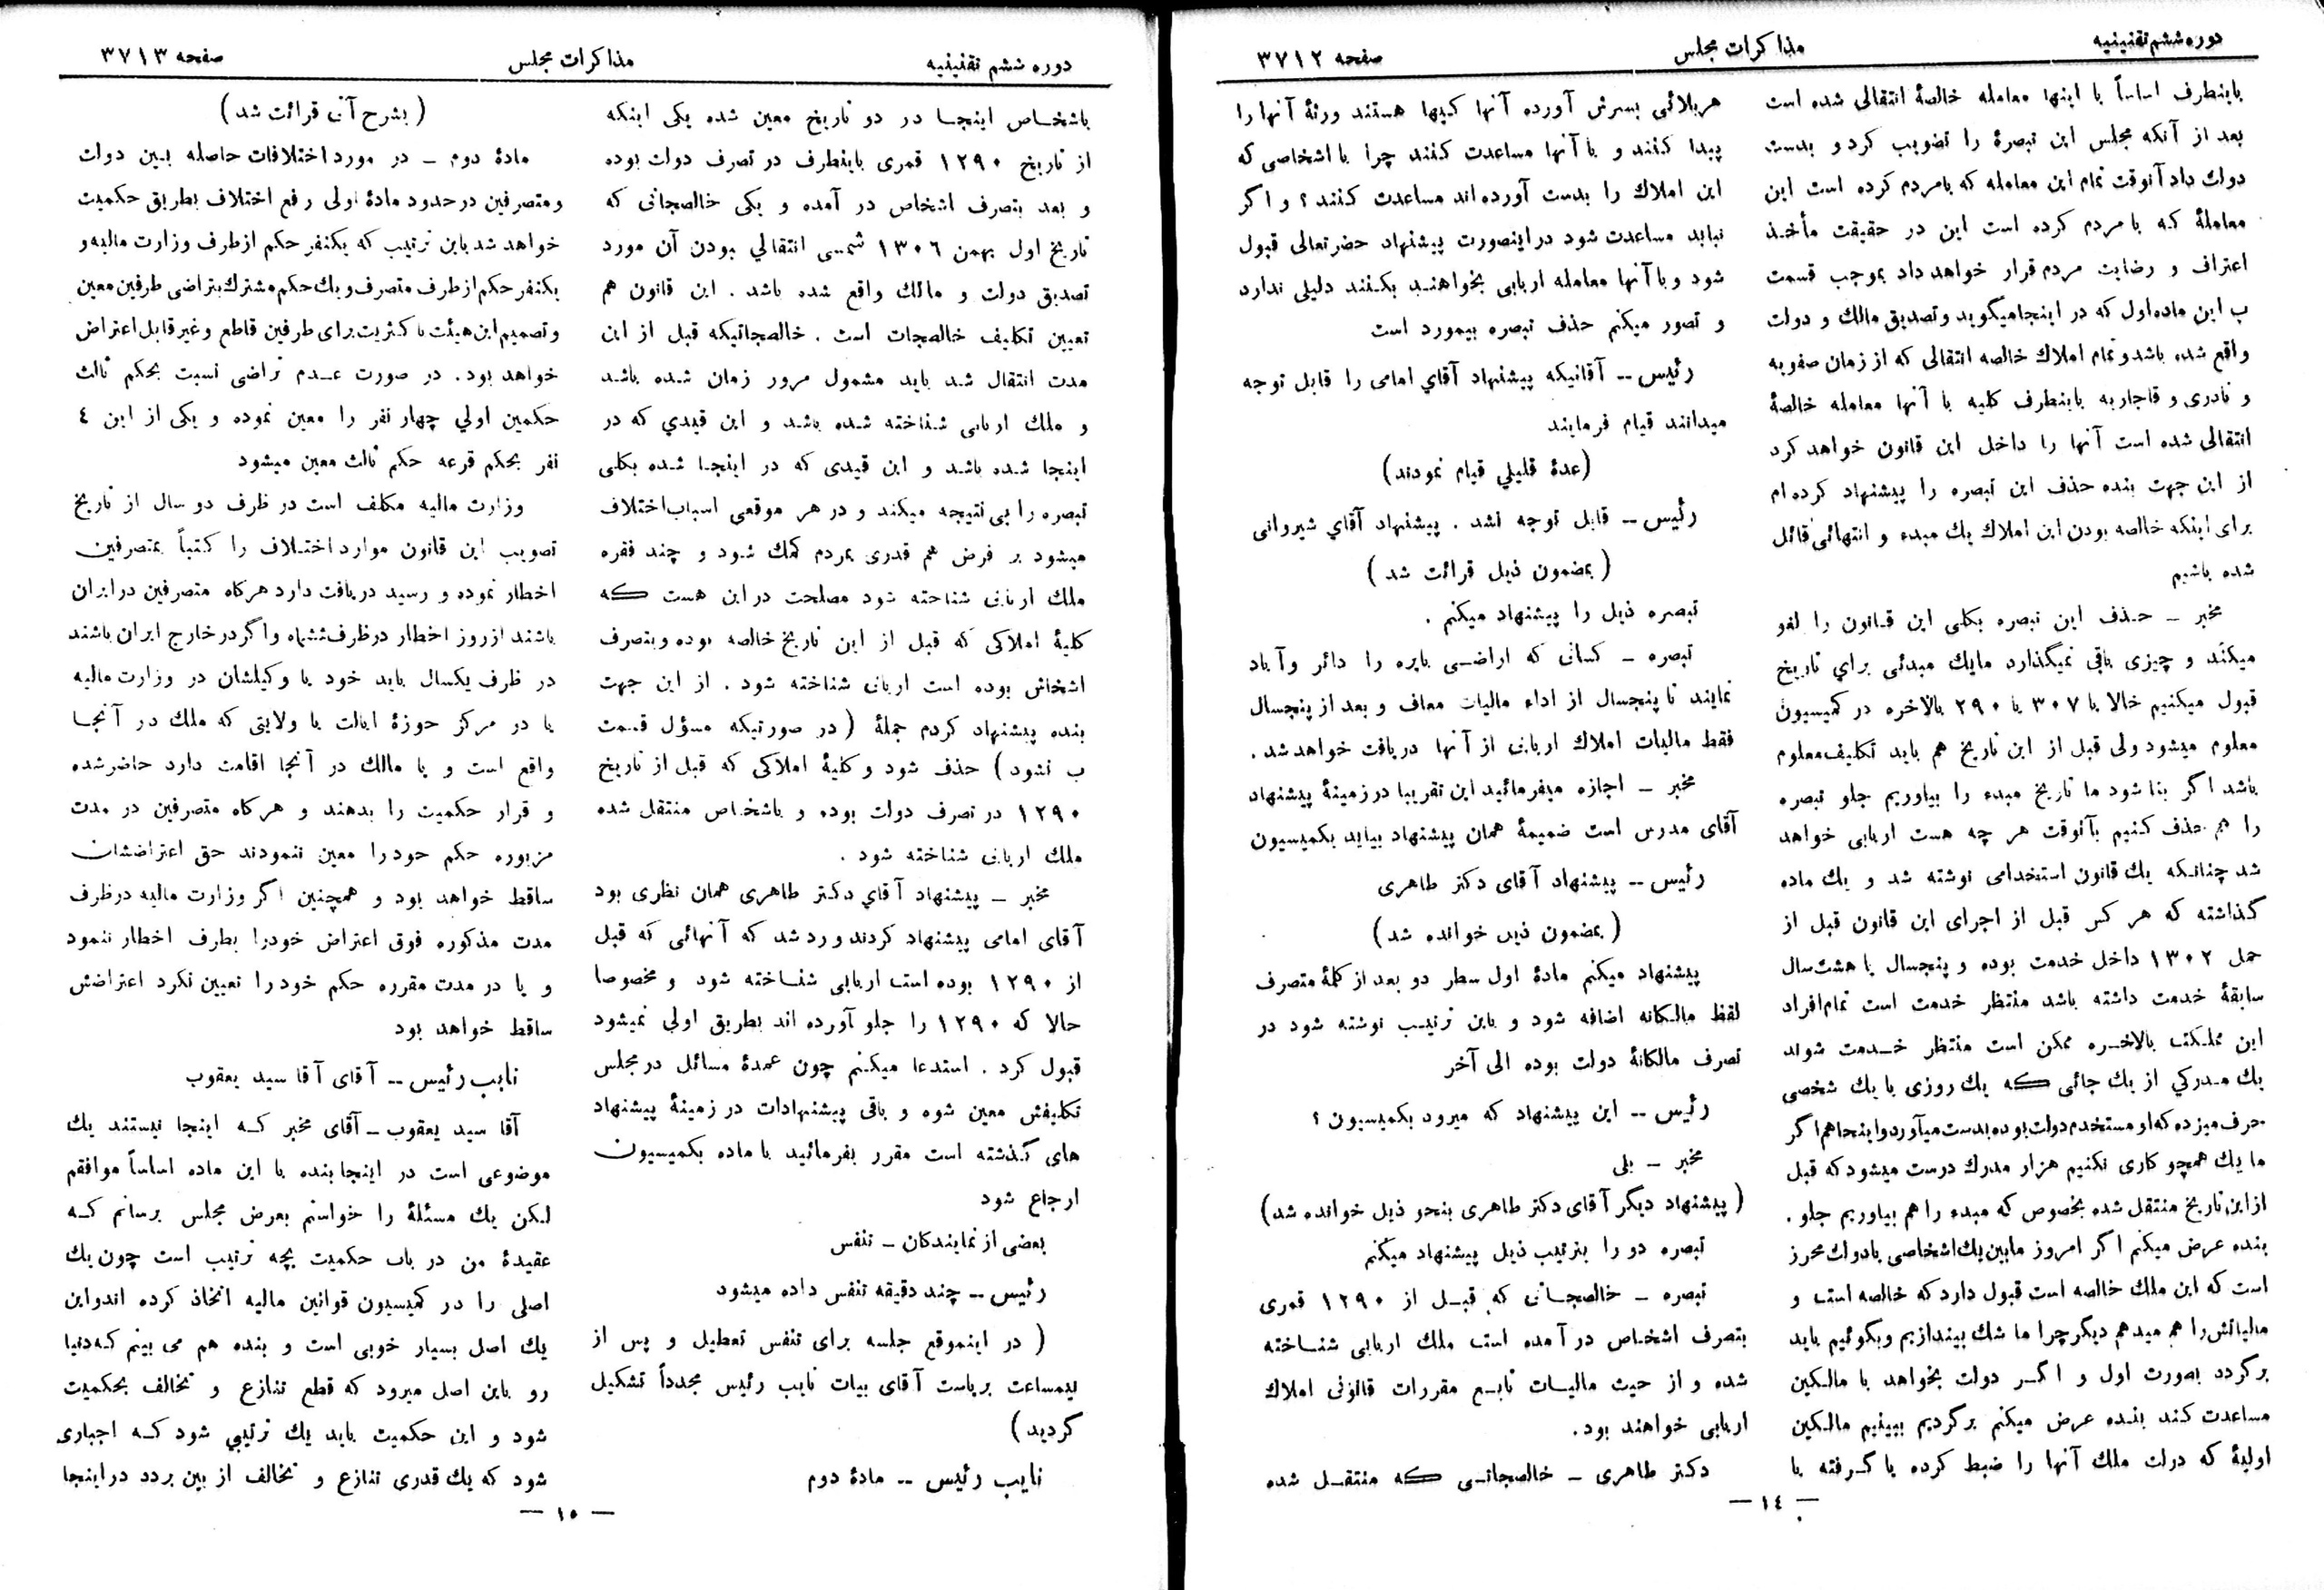 دوره ششم تقنینیه
مذاکرات مجلس
صفحه ۳۷۱۲
باینطرف اساساً با اینها معامله خالصهٔ انتقالی شده است
بعد از آنکه مجلس این تبصرهٔ را تصویب کرد و بدست
دولت داد آنوقت تمام این معامله که بامردم کرده است این
معاملهٔ که با مردم کرده است این در حقیقت مأخذ
اعتراف و رضایت مردم قرار خواهد داد بموجب قسمت
ب این ماده اول که در اینجا میگوید و تصدیق مالک و دولت
واقع شده باشد و تمام املاك خالصه انتقالی که از زمان صفویه
و نادری و قاجاریه باینطرف کلیه با آنها معامله خالصهٔ
انتقالی شده است آنها را داخل این قانون خواهد کرد
از این جهت بنده حذف این تبصره را پیشنهاد کرده ام
برای اینکه خالصه بودن این املاك یك مبدء و انتهائی قائل
شده باشیم
مخبر ـ حذف این تبصره بکلی این قانون را لغو
میکند و چیزی باقی نمیگذارد مایك مبدئی براي تاریخ
قبول میکنیم حالا یا ۳۰۷ یا ۲۹۰ بالاخره در کمیسیون
معلوم میشود ولی قبل از این تاریخ هم باید تکلیف معلوم
باشد اگر بنا شود ما تاریخ مبدء را بیاوریم جلو تبصره
را هم حذف کنیم بآنوقت هر چه هست اربابی خواهد
شد چنانکه یك قانون استخدامی نوشته شد و یك ماده
گذاشته که هر کس قبل از اجرای این قانون قبل از
حمل ۱۳۰۲ داخل خدمت بوده و پنجسال یا هشت سال
سابقهٔ خدمت داشته باشد منتظر خدمت است تمام افراد
این مملکت بالاخره ممکن است منتظر خدمت شوند
یك مدرکي از یك جائی که یك روزی با یك شخصی
حرف میزده که او مستخدم دولت بوده بدست میآورد و اینجا هم اگر
ما یك همچو کاری نکنیم هزار مدرك درست میشود که قبل
از این تاریخ منتقل شده بخصوص که مبدء را هم بیاوریم جلو .
بنده عرض میکنم اگر امروز مابین یك اشخاصی با دولت محرز
است که این ملك خالصه است قبول دارد که خالصه است و
مالیاتش را هم میدهم دیگر چرا ما شك بیندازیم و بگوئیم باید
برگردد بصورت اول و اگر دولت بخواهد با مالکین
مساعدت کند بنده عرض میکنم برگردیم ببینیم مالکین
اولیهٔ که دولت ملك آنها را ضبط کرده یا گرفته یا
هر بلائی بسرش آورده آنها کیها هستند ورثهٔ آنها را
پیدا کنند و با آنها مساعدت کنند چرا با اشخاصی که
این املاك را بدست آورده اند مساعدت کنند ؟ و اگر
نباید مساعدت شود در اینصورت پیشنهاد حضرتعالی قبول
شود و با آنها معامله اربابی بخواهند بکنند دلیلی ندارد
و تصور میکنم حذف تبصره بیمورد است
رئیس -- آقانیکه پیشنهاد آقاي امامی را قابل توجه
میدانند قیام فرمایند
(عدهٔ قلیلي قیام نمودند)
رئیس -- قابل توجه نشد . پیشنهاد آقاي شیروانی
( بمضمون ذیل قرائت شد )
تبصره ذیل را پیشنهاد میکنم .
تبصره ـ کسانی که اراضی بایره را دائر و آباد
نمایند تا پنجسال از اداء مالیات معاف و بعد از پنجسال
فقط مالیات املاك اربابی از آنها دریافت خواهد شد .
مخبر ـ اجازه میفرمائید این تقریبا در زمینهٔ پیشنهاد
آقای مدرس است ضمیمهٔ همان پیشنهاد بیاید بکمیسیون
رئیس -- پیشنهاد آقای دکتر طاهری
( بمضمون ذیل خوانده شد )
پیشنهاد میکنم مادهٔ اول سطر دو بعد از کلمهٔ متصرف
لفظ مالکانه اضافه شود و باین ترتیب نوشته شود در
تصرف مالکانهٔ دولت بوده الی آخر
رئیس -- این پیشنهاد که میرود بکمیسیون ؟
مخبر ـ بلی
( پیشنهاد دیگر آقای دکتر طاهری بنحو ذیل خوانده شد)
تبصره دو را بترتیب ذیل پیشنهاد میکنم
تبصره ـ خالصجاتی که قبل از ۱۲۹۰ قمری
بتصرف اشخاص در آمده است ملك اربابی شناخته
شده و از حیث مالیات تابع مقررات قانونی املاك
اربابی خواهند بود.
دکتر طاهری ـ خالصجاتی که منتقل شده
— ١٤ —
دوره ششم تقنینیه
مذاکرات مجلس
صفحه ۳۷۱۳
باشخاص اینجا در دو تاریخ معین شده یکی اینکه
از تاریخ ۱۲۹۰ قمری باینطرف در تصرف دولت بوده
و بعد بتصرف اشخاص در آمده و یکی خالصجاتی که
تاریخ اول بهمن ۱۳۰۶ شمسی انتقالي بودن آن مورد
تصدیق دولت و مالك واقع شده باشد . این قانون هم
تعیین تکلیف خالصجات است . خالصجاتیکه قبل از این
مدت انتقال شد باید مشمول مرور زمان شده باشد
و ملك اربابی شناخته شده باشد و این قیدي که در
اینجا شده باشد و این قیدی که در اینجا شده بکلی
تبصره را بی نتیجه میکند و در هر موقعی اسباب اختلاف
میشود بر فرض هم قدری بمردم کمك شود و چند فقره
ملك اربابی شناخته شود مصلحت در این هست که
کلیهٔ املاکی که قبل از این تاریخ خالصه بوده و بتصرف
اشخاص بوده است اربابی شناخته شود . از این جهت
بنده پیشنهاد کردم جملهٔ ( در صورتیکه مسؤل قسمت
ب نشود ) حذف شود و کلیهٔ املاکی که قبل از تاریخ
۱۲۹۰ در تصرف دولت بوده و باشخاص منتقل شده
ملك اربابی شناخته شود .
مخبر ـ پیشنهاد آقاي دکتر طاهری همان نظری بود
آقای امامی پیشنهاد کردند و رد شد که آنهائی که قبل
از ۱۲۹۰ بوده است اربابی شناخته شود و مخصوصا
حالا که ۱۲۹۰ را جلو آورده اند بطریق اولي نمیشود
قبول کرد . استدعا میکنم چون عمدهٔ مسائل در مجلس
تکلیفش معین شوه و باقی پیشنهادات در زمینهٔ پیشنهاد
های گذشته است مقرر بفرمائید با ماده بکمیسیون
ارجاع شود
بعضی از نمایندگان ـ تنفس
رئیس -- چند دقیقه تنفس داده میشود
( در اینموقع جلسه برای تنفس تعطیل و پس از
نیمساعت بریاست آقای بیات نایب رئیس مجدداً تشکیل
گردید )
نایب رئیس -- مادهٔ دوم
( بشرح آتی قرائت شد )
مادهٔ دوم ـ در مورد اختلافات حاصله بین دولت
و متصرفین در حدود مادهٔ اولی رفع اختلاف بطریق حکمیت
خواهد شد باین ترتیب که یکنفر حکم از طرف وزارت مالیه و
یکنفر حکم از طرف متصرف و یك حکم مشترك بتراضی طرفین معین
و تصمیم این هیئت با کثریت برای طرفین قاطع و غیر قابل اعتراض
خواهد بود. در صورت عدم تراضی نسبت بحکم ثالث
حکمین اولي چهار نفر را معین نموده و یکی از این ٤
نفر بحکم قرعه حکم ثالث معین میشود
وزارت مالیه مکلف است در ظرف دو سال از تاریخ
تصویب این قانون موارد اختلاف را کتباً بمتصرفین
اخطار نموده و رسید دریافت دارد هرگاه متصرفین در ایران
باشند از روز اخطار در ظرف ششماه و اگر در خارج ایران باشند
در ظرف یکسال باید خود یا وکیلشان در وزارت مالیه
یا در مرکز حوزهٔ ایالت یا ولایتی که ملك در آنجا
واقع است و یا مالك در آنجا اقامت دارد حاضر شده
و قرار حکمیت را بدهند و هرگاه متصرفین در مدت
مزبوره حکم خود را معین ننمودند حق اعتراضشان
ساقط خواهد بود و همچنین اگر وزارت مالیه در ظرف
مدت مذکوره فوق اعتراض خود را بطرف اخطار ننمود
و یا در مدت مقرره حکم خود را تعیین نکرد اعتراضش
ساقط خواهد بود
نایب رئیس -- آقای آقا سید یعقوب
آقا سید یعقوب ـ آقای مخبر که اینجا نیستند یك
موضوعی است در اینجا بنده با این ماده اساساً موافقم
لکن یك مسئلهٔ را خواستم بعرض مجلس برسانم که
عقیدهٔ من در باب حکمیت بچه ترتیب است چون یك
اصلی را در کمیسیون قوانین مالیه اتخاذ کرده اند و این
یك اصل بسیار خوبی است و بنده هم می بینم که دنیا
رو باین اصل میرود که قطع تنازع و تخالف بحکمیت
شود و این حکمیت باید یك ترتیبي شود که اجباری
شود که یك قدری تنازع و تخالف از بین بردد در اینجا
— ١٥ —